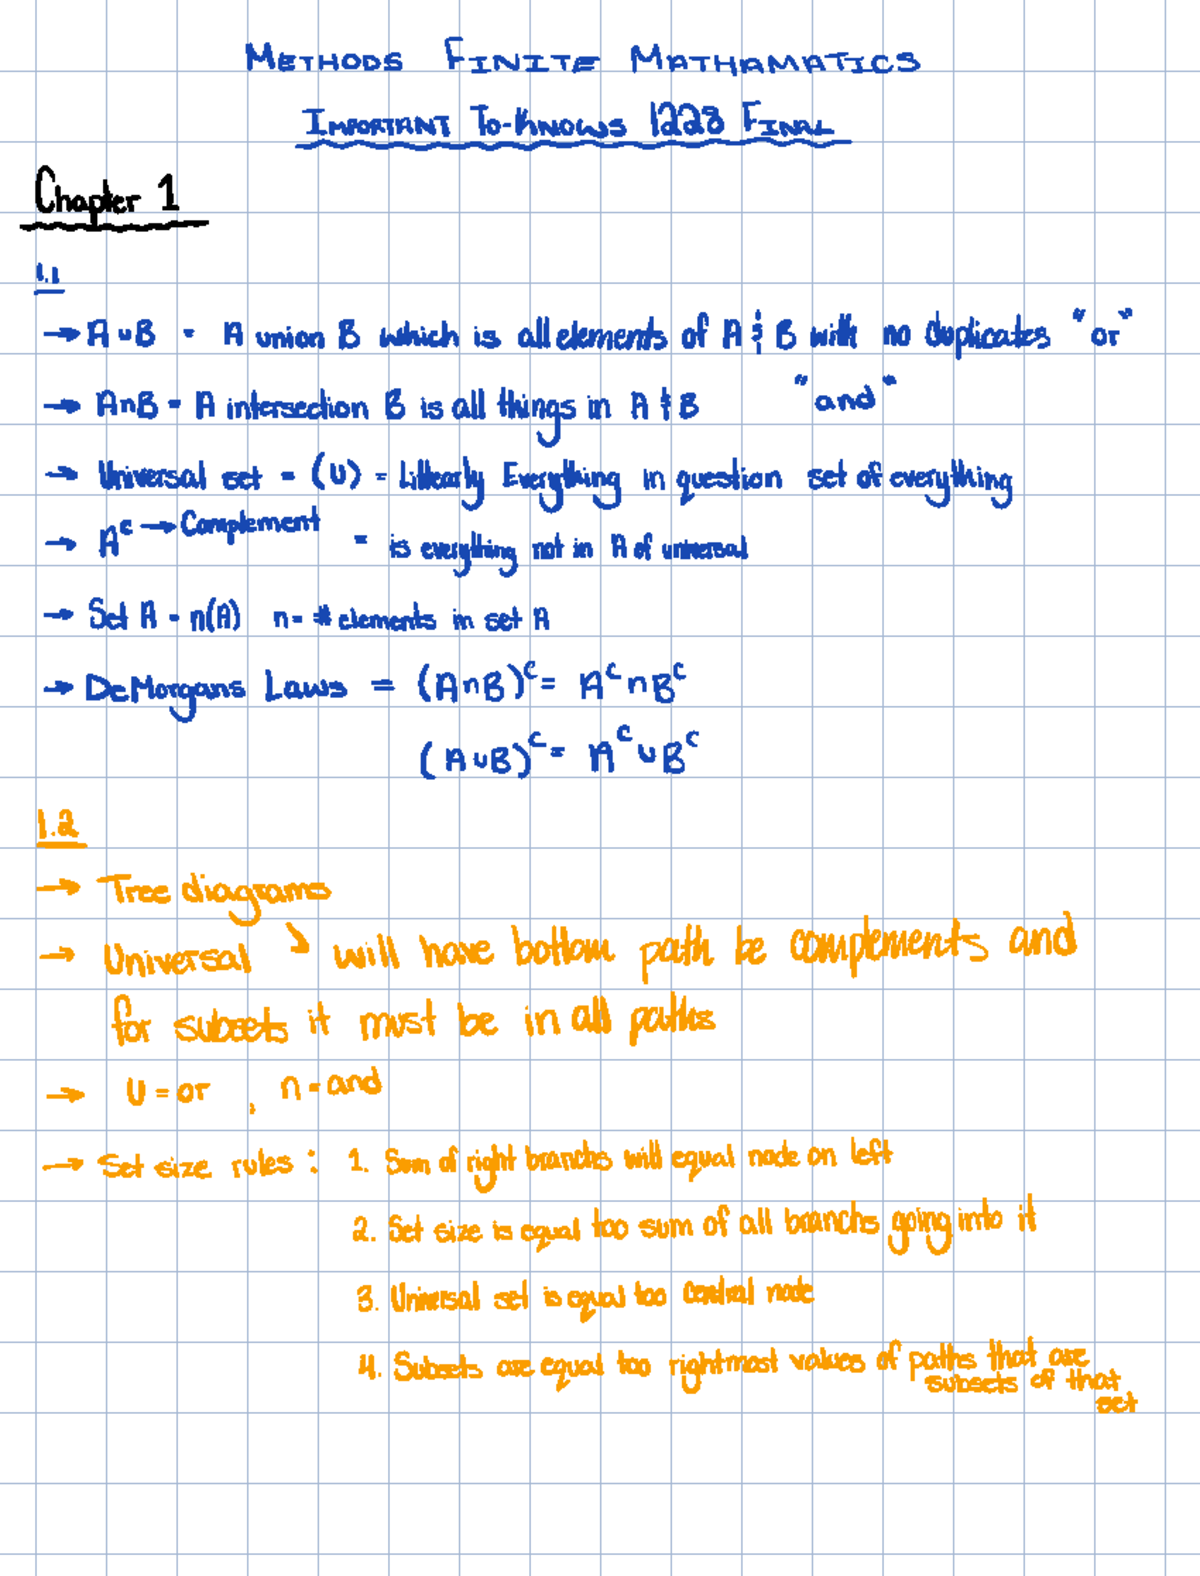 METHODS FINITE MATHAMATICS
IMPORTANT TO-KNOWS 1228 FINAL
Chapter 1
1.1
→ A ∪ B = A union B which is all elements of A & B with no duplicates "or"
→ A∩B = A intersection B is all things in A & B "and"
→ Universal set = (U) = Litterarly Everything in question set of everything
→ Aᶜ → Complement = is everything not in A of universal
→ Set A = n(A) n = # elements in set A
→ DeMorgans Laws = (A∩B)ᶜ = Aᶜ ∩ Bᶜ
(A∪B)ᶜ = Aᶜ ∪ Bᶜ
1.2
→ Tree diagrams
→ Universal ↘ will have bottom path be complements and
for subsets it must be in all paths
→ U = or , n = and
→ Set size rules : 1. Sum of right branchs will equal node on left
2. Set size is equal too sum of all branchs going into it
3. Universal set is equal too central node
4. Subsets are equal too rightmost values of paths that are
subsets of that
set